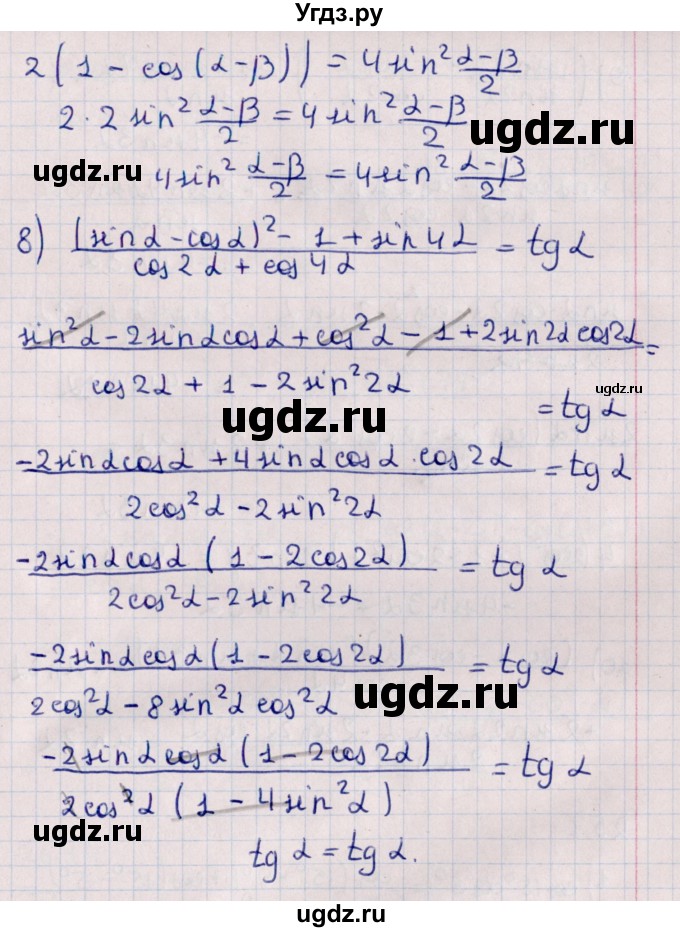 Угдз.ру
2(1 - cos(α-β)) = 4sin² (α-β)/2
2·2sin² (α-β)/2 = 4sin² (α-β)/2
ugdz.ru
ugdz.ru
4sin² (α-β)/2 = 4sin² (α-β)/2
8) ((sinα - cosα)² - 1 + sin4α)/(cos2α + cos4α) = tgα
(sin²α - 2sinαcosα + cos²α - 1 + 2sin2αcos2α)/(cos2α + 1 - 2sin²2α) =
ugdz.ru
ugdz.ru
= tgα
(-2sinαcosα + 4sinαcosα·cos2α)/(2cos²α - 2sin²2α) = tgα
(-2sinαcosα(1 - 2cos2α))/(2cos²α - 2sin²2α) = tgα
(-2sinαcosα(1 - 2cos2α))/(2cos²α - 8sin²αcos²α) = tgα
ugdz.ru
(-2sinαcosα(1 - 2cos2α))/(2cos²α(1 - 4sin²α)) = tgα
ugdz.ru
tgα = tgα.
ugdz.ru